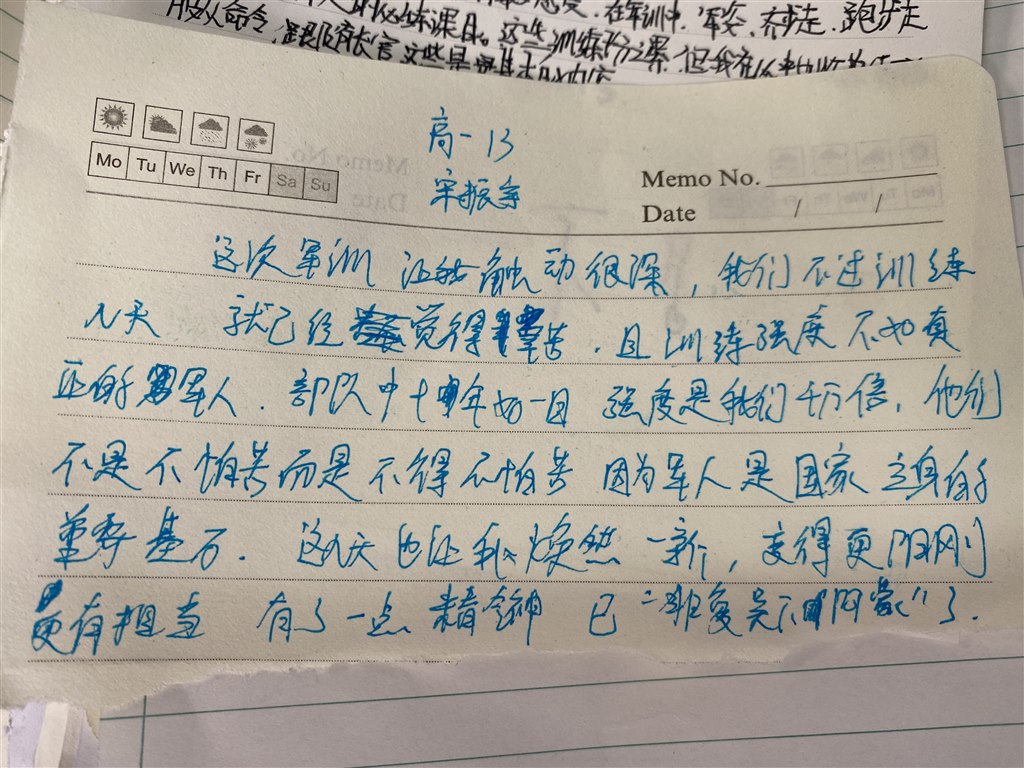 的必练课目。这些训练
在军训中,军姿、齐步走、跑步走
服从命令,
高一13
宋振宇
Mo Tu We Th Fr Sa Su
Memo No.
Date / /
这次军训 让我触动很深,我们不过训练
几天 就已经觉得苦.且训练强度不如真
正的军人.部队中十年如一日 强度是我们千万倍.他们
不是不怕苦而是不得不怕苦 因为军人是国家立身的
重要基石. 这几天也让我焕然一新,变得更阳刚
更有担当 有了一点精神 已“非复吴下阿蒙”了.